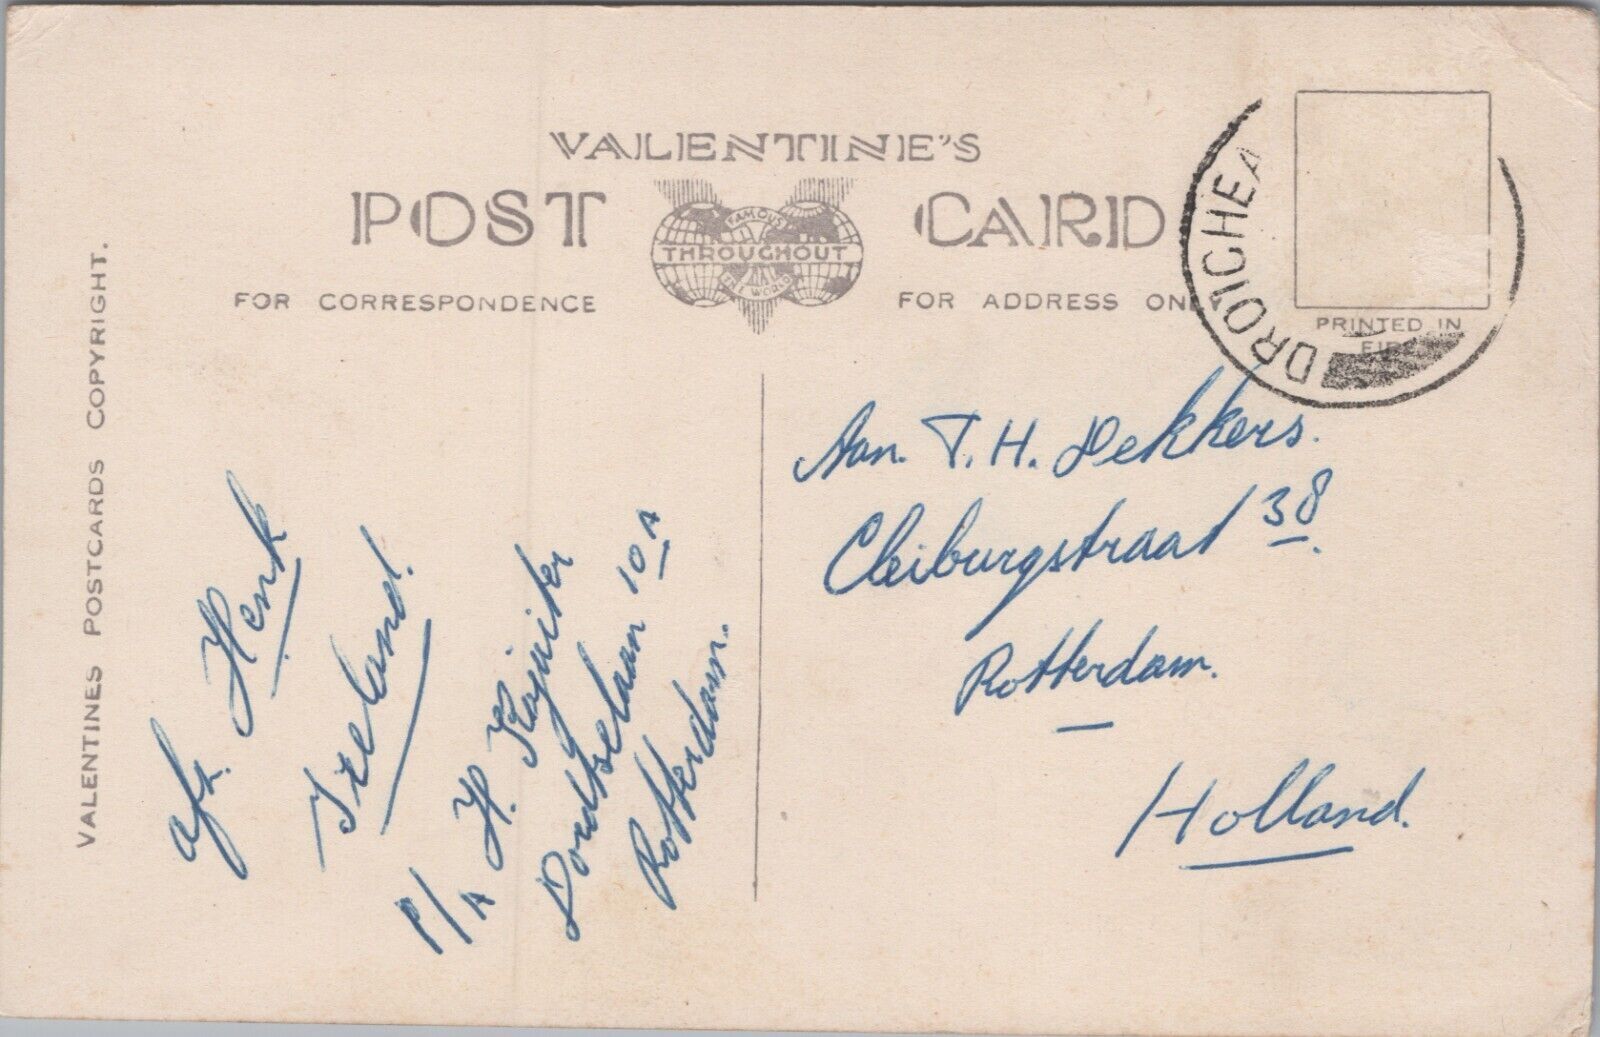 VALENTINE'S
POST CARD
FAMOUS
THROUGHOUT
THE WORLD
FOR CORRESPONDENCE
FOR ADDRESS ONL
DROICHEA
PRINTED IN
EIRE
VALENTINES POSTCARDS COPYRIGHT.
afz. Henk
Ireland.
P/A H. Kojuiter
Dordtselaan 10A
Rotterdam.
Aan. T. H. Dekkers.
Cleiburgstraat 38.
Rotterdam.
Holland.